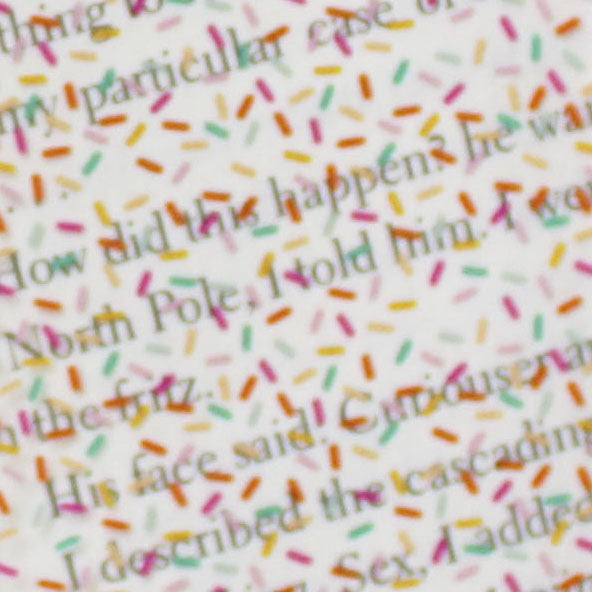 thing to
my particular case of
How did this happen? he wan
North Pole, I told him. I wen
the fritz.
His face said: Curiouser an
I described the cascading
Sex, I added